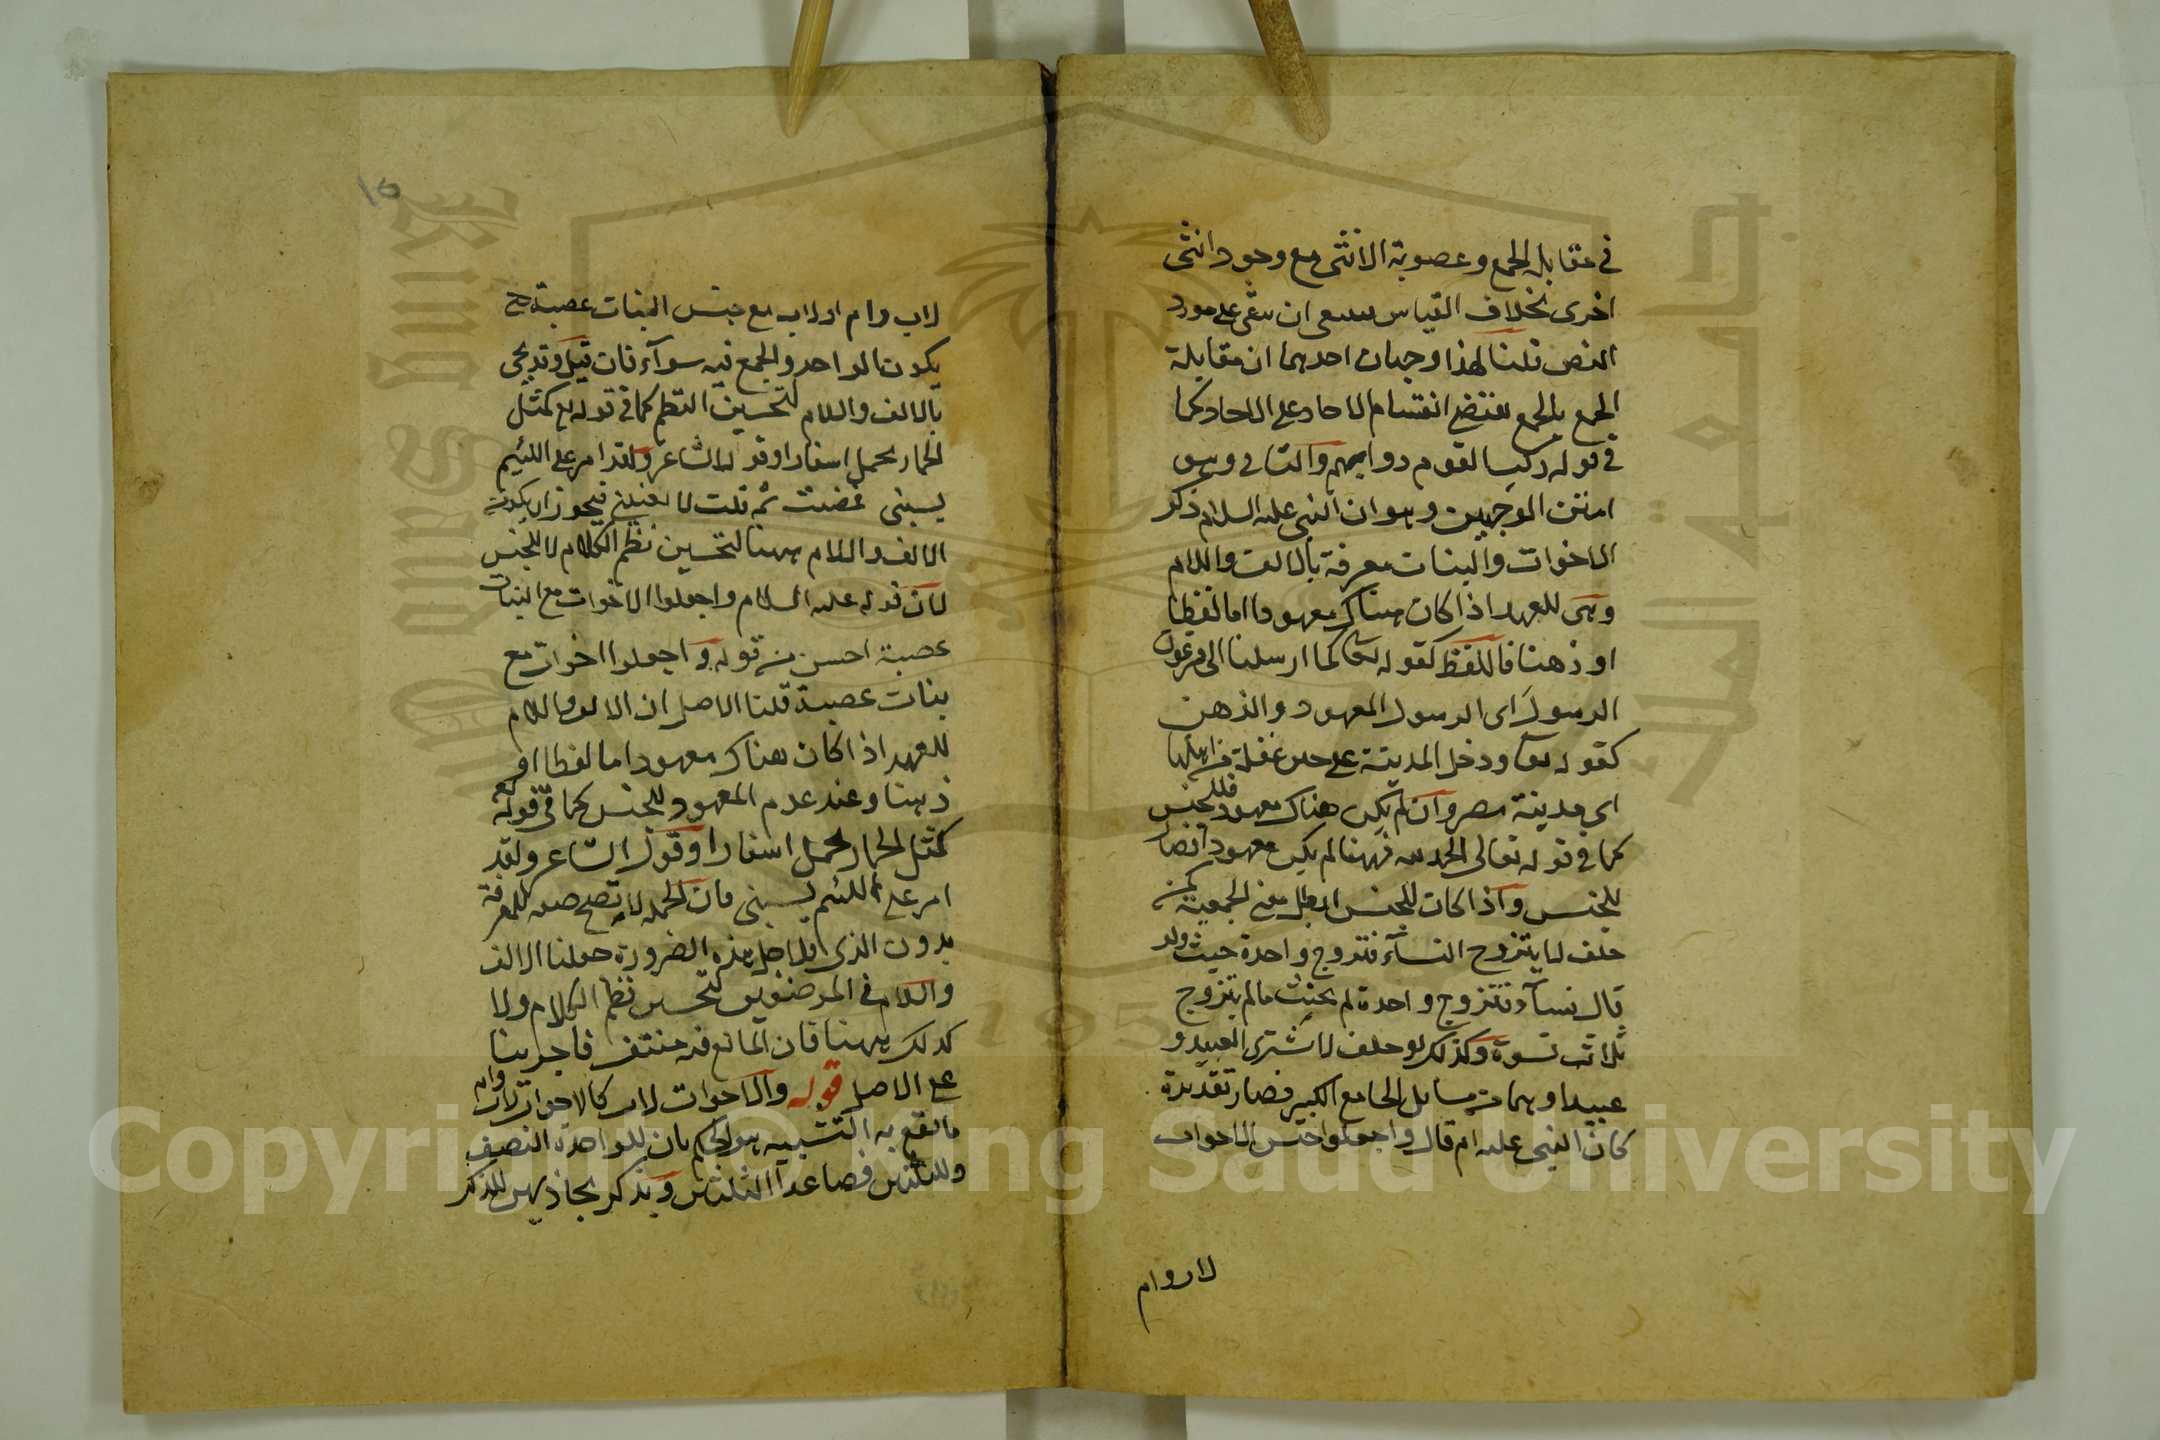 في مقابلة الجمع وعصوبة الانثى مع وجود انثى
اخرى بخلاف القياس ان يبقى على مورد
النص قلنا لهذا وجهان احدهما ان مقابلة
الجمع بالجمع يقتضي انقسام الاحاد على الاحاد كما
في قوله ركب القوم دوابهم والثاني وهو
امتن الوجهين وهو ان النبي عليه السلام ذكر
الاخوات والبنات معرفة بالالف واللام
وهي للعهد اذا كان هناك معهودا اما لفظا
او ذهنا فاللفظ كقوله تعا كما ارسلنا الى فرعون
الرسول اى الرسول المعهود والذهن
كقوله تعا ودخل المدينة على حين غفلة من اهلها
اى مدينة مصر وان لم يكن هناك معهود فللجنس
كما في قوله تعالى الحمد لله فههنا لم يكن معهود فصار
للجنس واذا كان للجنس ابطل معنى الجمعية كمن
حلف لا يتزوج النساء فتزوج واحدة حيث ولو
قال نساء فتزوج واحدة لم يحنث ما لم يتزوج
ثلاث نسوة وكذلك لو حلف لا اشترى العبيد و
عبيدا وهما من مسايل الجامع الكبير فصار تقديره
كان النبي عليه ام قال واجعلوا جنس الاخوات
لاب وام
لاب وام او لاب مع جنس البنات عصبة ح
يكون الواحد والجمع فيه سواء فان قيل وقد يجى
بالالف واللام لتحسين النظم كما في قوله تع كمثل
الحمار يحمل اسفارا وقول الشاعر ولقد امر على اللئيم
يسبني فمضيت ثمه قلت لا يعنيني فيجوز ان يكون
الالف واللام ههنا لتحسين نظم الكلام لا للجنس
لان قوله عليه السلام واجعلوا الاخوات مع البنات
عصبة احسن من قوله واجعلوا اخوات مع
بنات عصبة قلنا الاصل ان الالف واللام
للعهد اذا كان هناك معهودا اما لفظا او
ذهنا وعند عدم المعهود للجنس كما في قوله تع
كمثل الحمار يحمل اسفارا وقول الشاعر ولقد
امر على اللئيم يسبني فان الجملة لا تصح صفه للمعرفة
بدون الذى فلاجل هذه الضرورة حملنا الالف
واللام في الموضعين لتحسين نظم الكلام ولا
كذلك ههنا فان المانع فيه منتف فاجرينا
على الاصل قوله والاخوات لاب كالاخوات لاب وام
ما يقع به التشبيه هو الحكم بان للواحدة النصف
وللثلثين فصاعدا الثلثين ويذكر بحاذيهن للذكر
Copyright © King Saud University
King Saud University
جامعة الملك
195